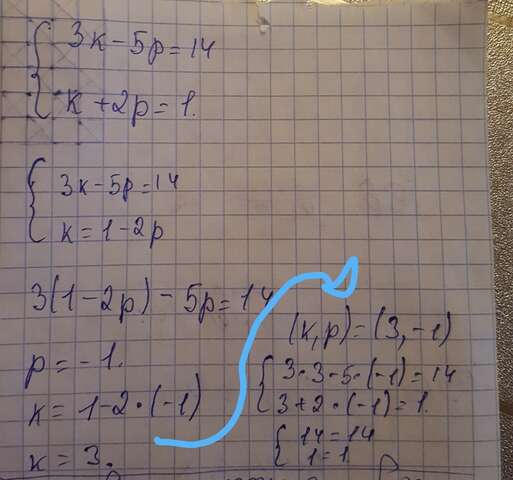 { 3k - 5p = 14
k + 2p = 1.
{ 3k - 5p = 14
k = 1 - 2p
3(1 - 2p) - 5p = 14
p = -1.
k = 1 - 2 · (-1)
k = 3.
(k, p) = (3, -1)
{ 3 · 3 - 5 · (-1) = 14
3 + 2 · (-1) = 1.
{ 14 = 14
1 = 1